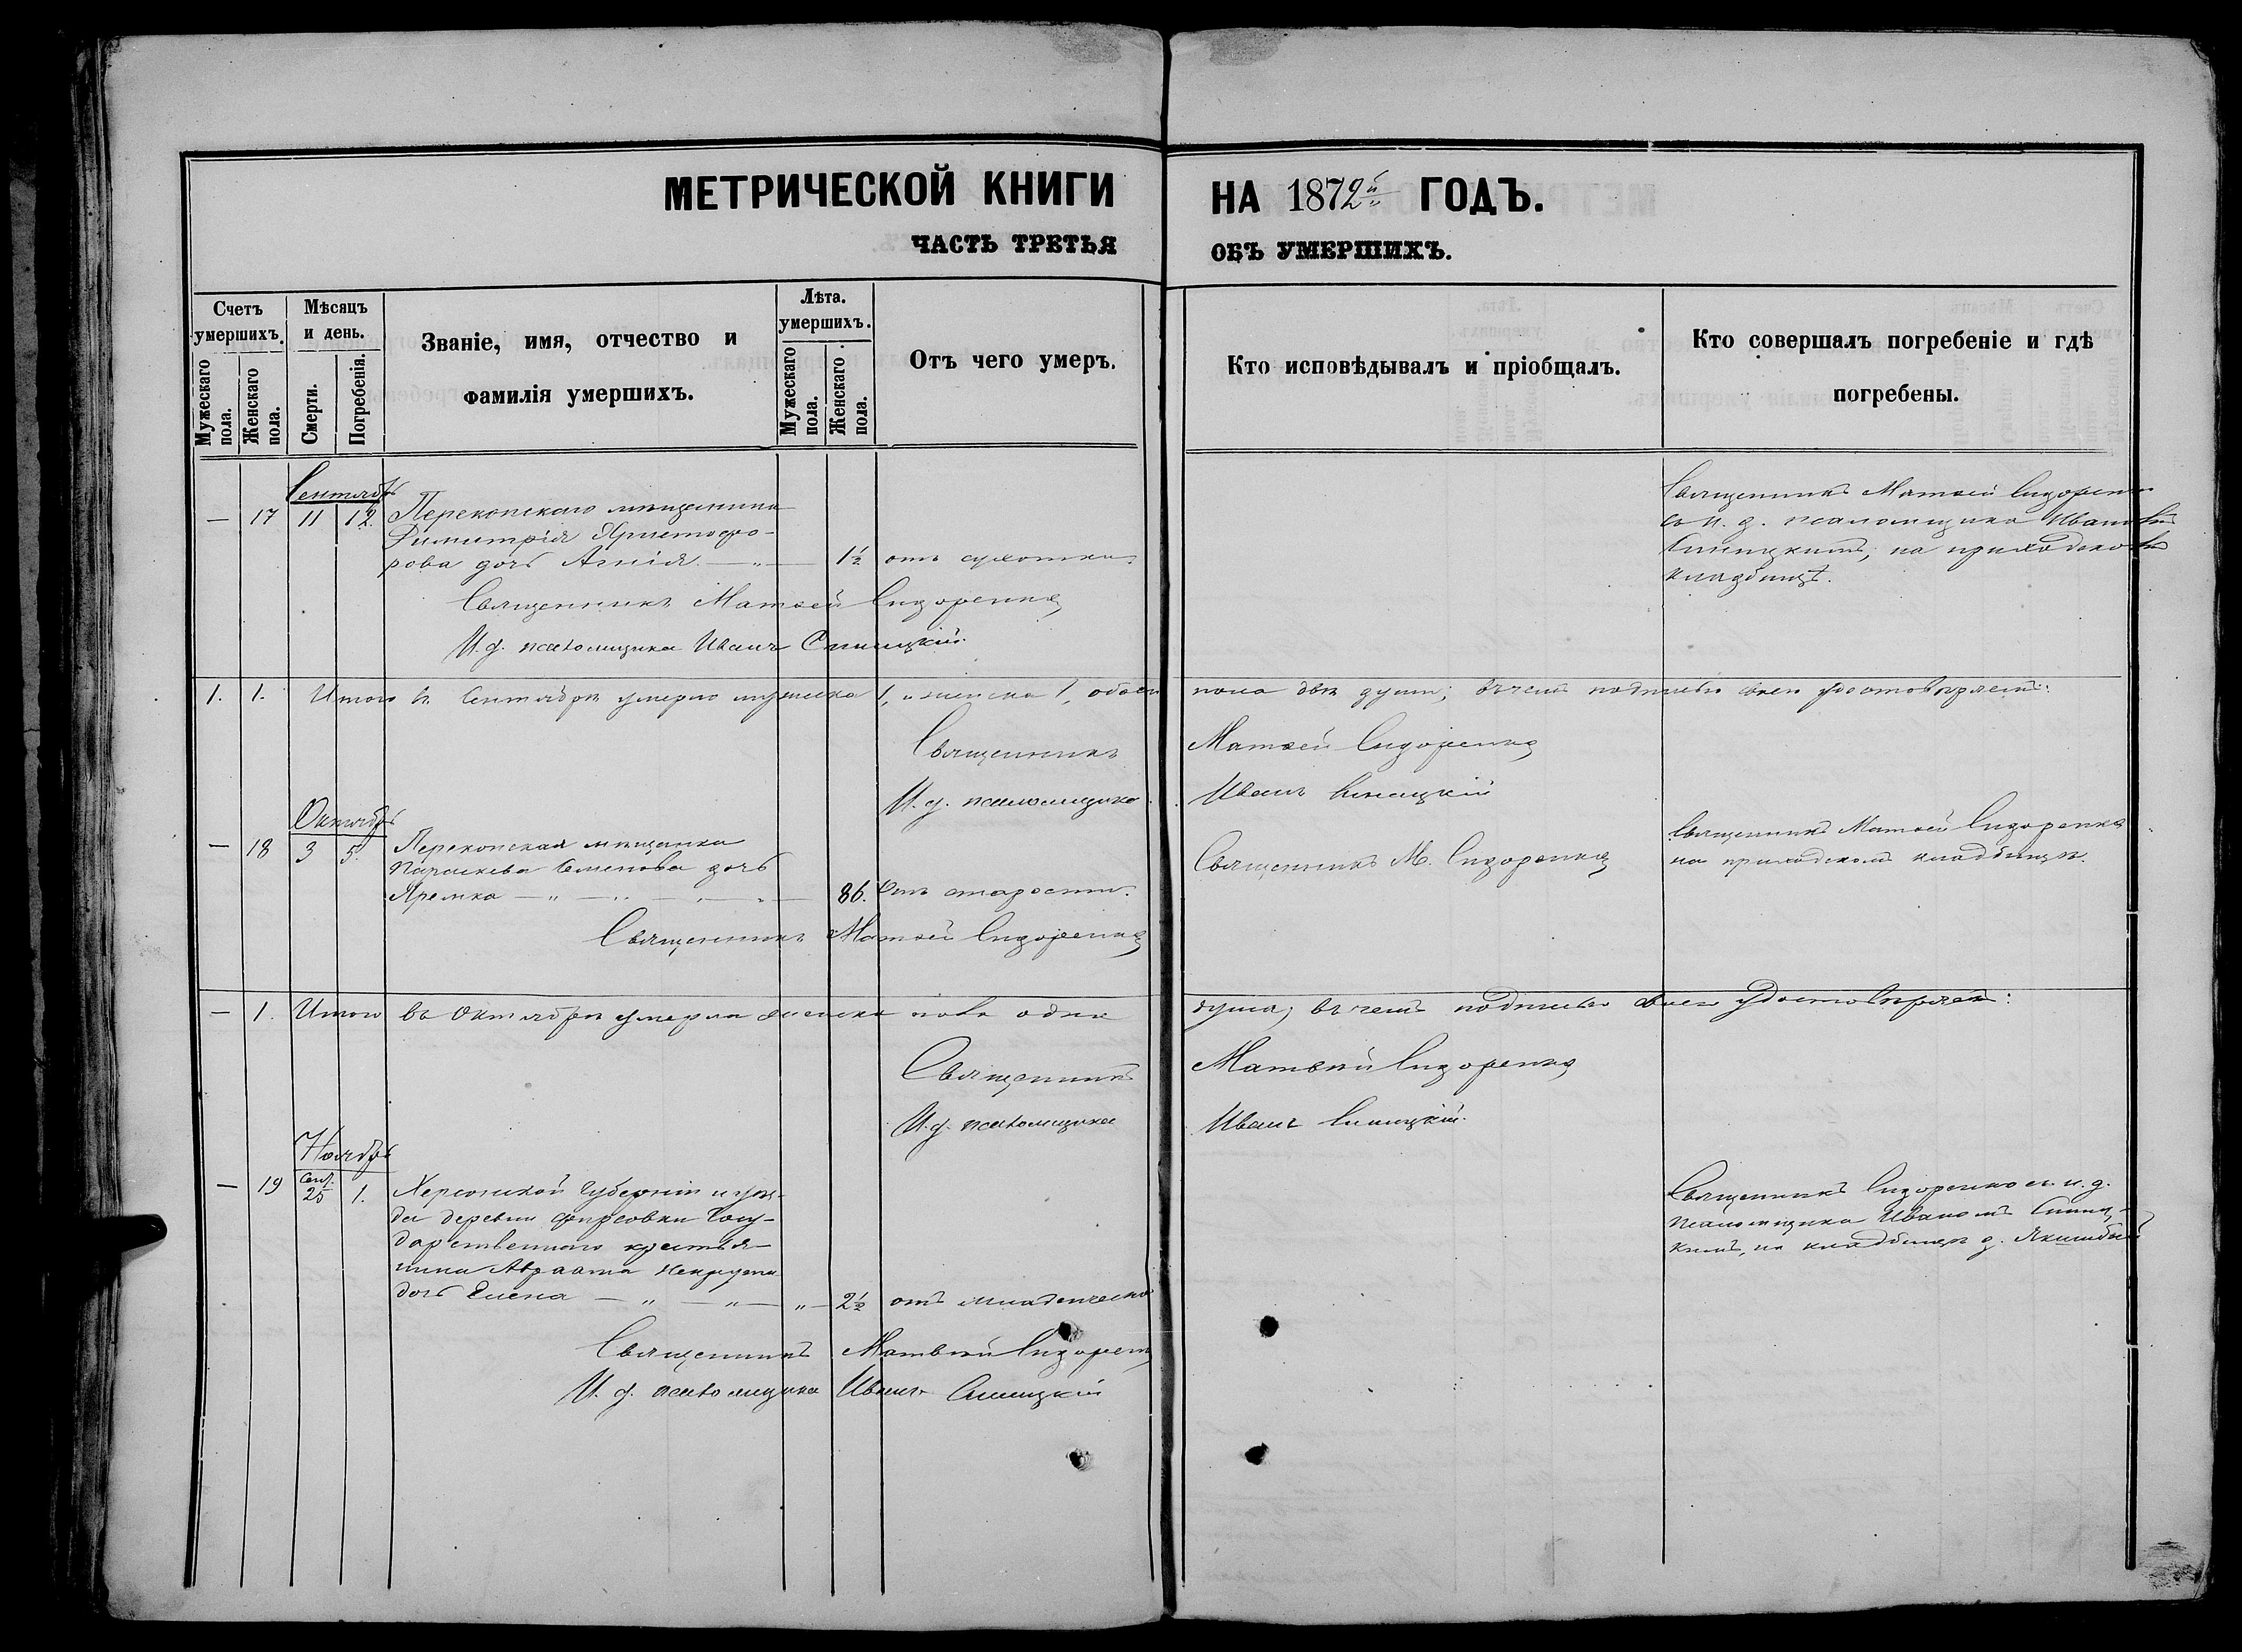 МЕТРИЧЕСКОЙ КНИГИ НА 1872й ГОДЪ.
ЧАСТЬ ТРЕТЬЯ ОБЪ УМЕРШИХЪ.
Счетъ умершихъ.
Мужескаго пола.
Женскаго пола.
Мѣсяцъ и день.
Смерти.
Погребенія.
Званіе, имя, отчество и
фамилія умершихъ.
Лѣта. умершихъ.
Мужескаго пола.
Женскаго пола.
Отъ чего умеръ.
Кто исповѣдывалъ и пріобщалъ.
Кто совершалъ погребеніе и гдѣ
погребены.
Сентябрь
— 17 11 12. Перекопскаго мѣщанина
Димитрія Христофо-
рова дочь Агнія — „ — 1½ отъ сухотки.
Священникъ Матѳей Сидоренко
съ и. д. псаломщика Иваномъ
Синицкимъ, на приходскомъ
кладбищѣ.
Священникъ Матѳей Сидоренко
И. д. псаломщика Иванъ Синицкій.
1. 1. Итого въ Сентябрѣ умерло мужеска 1, и женска 1, обоего пола двѣ души; въ чемъ подписью своею удостовѣряемъ:
Священникъ Матѳей Сидоренко
И. д. псаломщика Иванъ Синицкій
Октябрь
— 18 3 5. Перекопская мѣщанка
Параскева Семенова дочь
Яремка — „ — „ — „ — „ — 86. Отъ старости.
Священникъ М. Сидоренко
Священникъ Матѳей Сидоренко
на приходскомъ кладбищѣ.
Священникъ Матѳей Сидоренко
— 1. Итого въ Октябрѣ умерла женска пола одна душа; въ чемъ подписью своею удостовѣряемъ:
Священникъ Матвѣй Сидоренко
И. д. псаломщика Иванъ Синицкій.
Ноябрь
— 19 25 1. Херсонской Губерніи и уѣз-
да деревни Госу-
дарственнаго крестья-
нина Авраама
дочь Елена — „ — „ — „ — 2½ отъ младенческой
Священникъ Сидоренко съ и. д.
псаломщика Иваномъ Синиц-
кимъ, на кладбищѣ д.
Священникъ Матвѣй Сидоренко
И. д. псаломщика Иванъ Синицкій